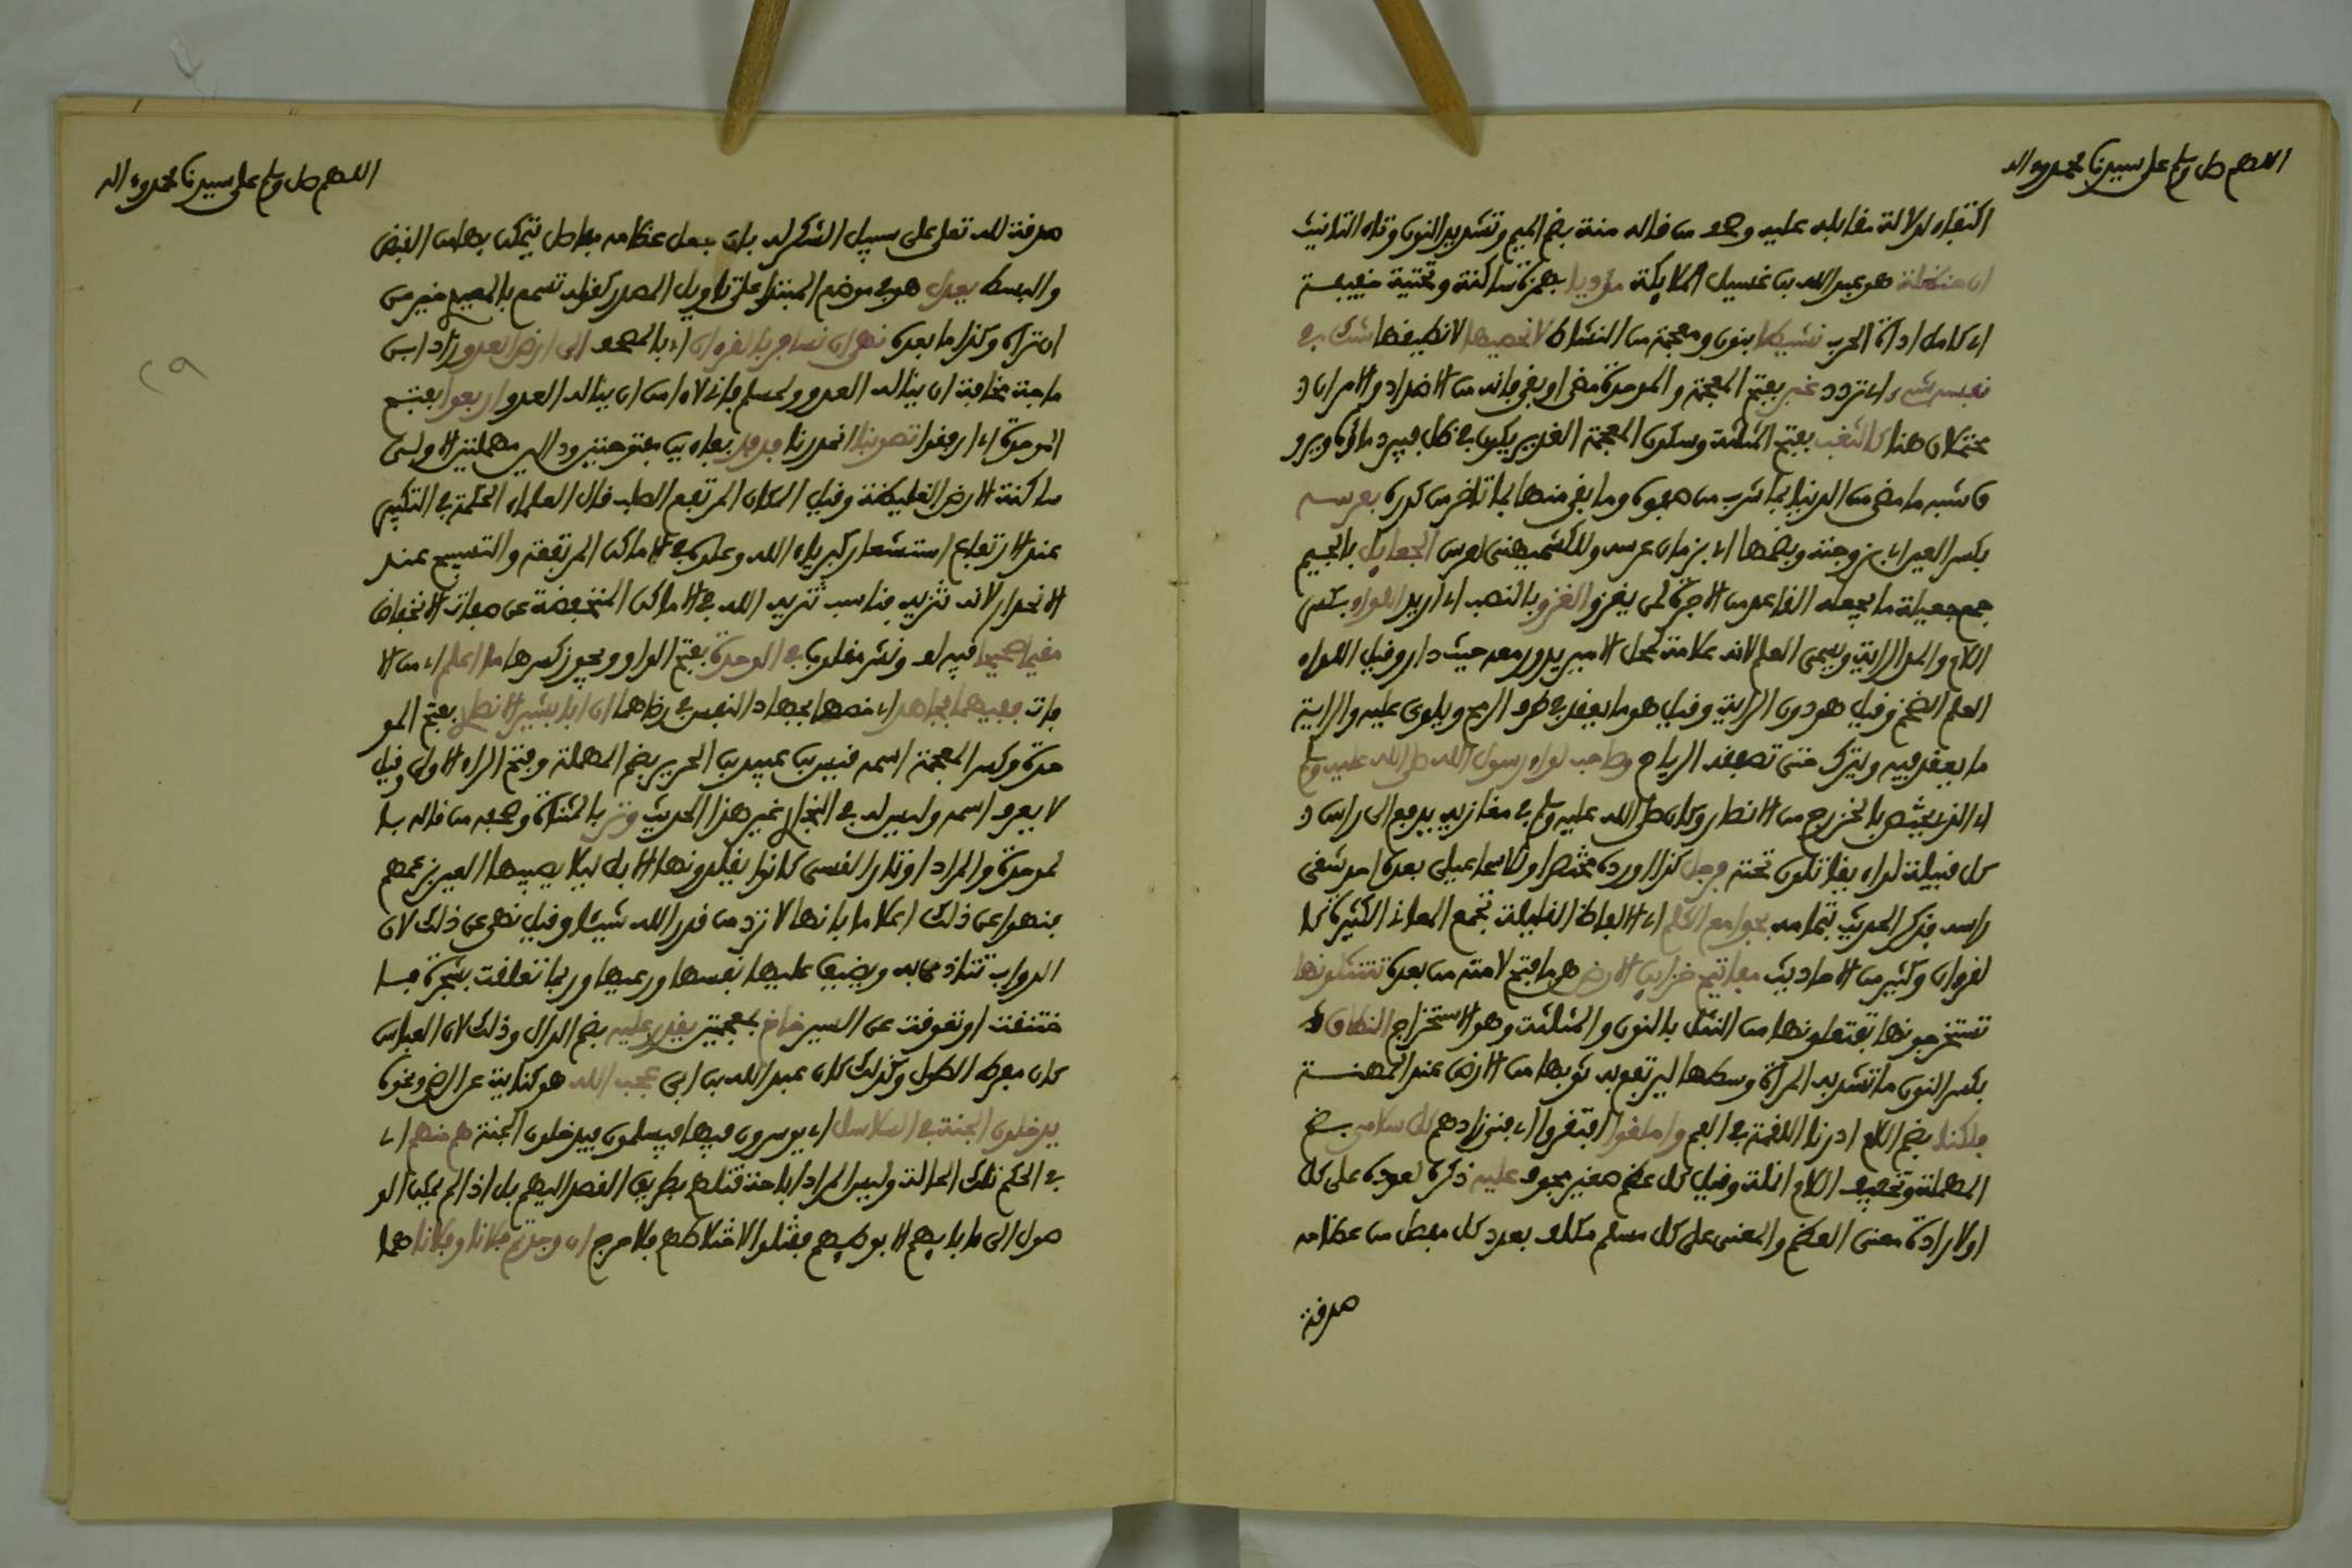 اللهم صل وسلم على سيدنا محمد وءاله
اكتفاء لدلالة مقابله عليه وصحف من قاله منة بضم الميم وتشديد النون وتاء التانيث
ابن حنظلة هو عبد الله بن غسيل الملايكة مؤديا بهمزة ساكنة وتحتية خفيفة
اي كامل اداة الحرب نشيطا بنون ومعجمة من النشاط لا نحصيها لا نطيقها شك في
نفسه شيء اي تردد غبر بفتح المعجمة والموحدة مضى او بقي فانه من الاضداد والامران
محتملان هنا كالثغب بفتح المثلثة وسكون المعجمة الغدير يكون في ظل فيبرد ماؤه ويرو
ق شبه ما مضى من الدنيا بما شرب من صفوه وما بقي منها بما تاخر من كدره بعرسه
بكسر العين اي بزوجته وبضمها اي بزمان عرسه وللكشميهني عرس الجعايل بالجيم
جمع جعيلة ما يجعله القاعد من الاجرة لمن يغزو الغزو بالنصب اي اريد اللواء بكسر
اللام والمد الراية ويسمى العلم لانه علامة لمحل الامير يدور معه حيث دار وقيل اللواء
العلم الضخم وقيل هو دون الراية وقيل هو ما يعقد في طرف الرمح ويلوى عليه والراية
ما يعقد فيه ويترك حتى تصفقه الرياح وصاحب لواء رسول الله صلى الله عليه وسلم
اي الذي يختص بالخزرج من الانصار وكان صلى الله عليه وسلم في مغازيه يدفع الى راس
كل قبيلة لواء يقاتلون تحته فرجل كذا اورده مختصرا وللاسماعيلي بعده احد شقي
راسه فذكر الحديث بتمامه بجوامع الكلم اي الالفاظ القليلة تجمع المعاني الكثيرة كا
لقرءان وكثير من الاحاديث مفاتيح خزاين الارض هو ما فتح لامته من بعده تنتثلونها
تستخرجونها تفتعلونها من النثل بالنون والمثلثة وهو الاستخراج النطاق
بكسر النون ما تشد به المرأة وسطها ليرتفع به ثوبها من الارض عند المهنة
فلكنا بضم اللام ادرنا اللقمة في الفم واملقوا افتقروا اي فني زادهم كل سلامى بضم
المهملة وتخفيف اللام انملة وقيل كل عظم صغير مجوف عليه ذكره لعوده على كل
او لارادة معنى العظم والمعنى على كل مسلم مكلف بعدد كل مفصل من عظامه
صدقة
اللهم صل وسلم على سيدنا محمد وءاله
صدقة لله تعلى على سبيل الشكر له بان جعل عظامه مفاصل يتمكن بها من القبض
والبسط يعدل هو في موضع المبتدا على تاويل المصدر كقوله تسمع بالمعيدي خير من
ان تراه وكذا ما بعده نهى ان نسافر بالقرءان اي بالمصحف الى ارض العدو زاد ابن
ماجة مخافة ان يناله العدو ولمسلم فاني لا ءامن ان يناله العدو اربعوا بفتح
الموحدة اي ارفقوا تصوبنا انحدرنا فدفد بفاءين مفتوحتين ودالين مهملتين الاولى
ساكنة الارض الغليظة وقيل المكان المرتفع الصلب قال العلماء الحكمة في التكبير
عند الارتفاع استشعار كبرياء الله وعلوه في الاماكن المرتفعة والتسبيح عند
الانحدار لانه تنزيه فناسب تنزيه الله في الاماكن المنخفضة عن صفات الانخفاض
مقيما صحيحا فيه لف ونشر مقلوب في الوحدة بفتح الواو ويجوز كسرها ما اعلم اي من الا
فات ففيهما فجاهد اي خصهما بجهاد النفس في رضاهما ان ابا بشير الانصاري بفتح المو
حدة وكسر المعجمة اسمه قيس بن عبيد بن الحرير بضم المهملة وفتح الراء الاولى وقيل
لا يعرف اسمه وليس له في البخاري غير هذا الحديث وتر بالمثناة وصحف من قاله با
لموحدة والمراد اوتار القسي كانوا يقلدونها الابل ليلا يصيبها العين بزعمهم
فنهوا عن ذلك اعلاما بانها لا ترد من قدر الله شيئا وقيل نهى عن ذلك لان
الدواب تتاذى به ويضيق عليها نفسها ورعيها وربما تعلقت بشجرة فا
ختنقت او تعوقت عن السير خاخ بمعجمتين يقدر عليه بضم الدال وذلك لان العباس
كان مفرط الطول وكذلك كان عبد الله بن ابي عجب الله هو كناية عن الرضى ونحوه
يدخلون الجنة في السلاسل اي يوسرون فيها فيسلمون فيدخلون الجنة هم منهم اي
في الحكم تلك الحالة وليس المراد اباحة قتلهم بطريق القصد اليهم بل اذا لم يمكن الو
صول الى الاباء الا بوطئهم فقتلوا لاختلاطهم فلا حرج ان وجدتم فلانا وفلانا هما
٢٩